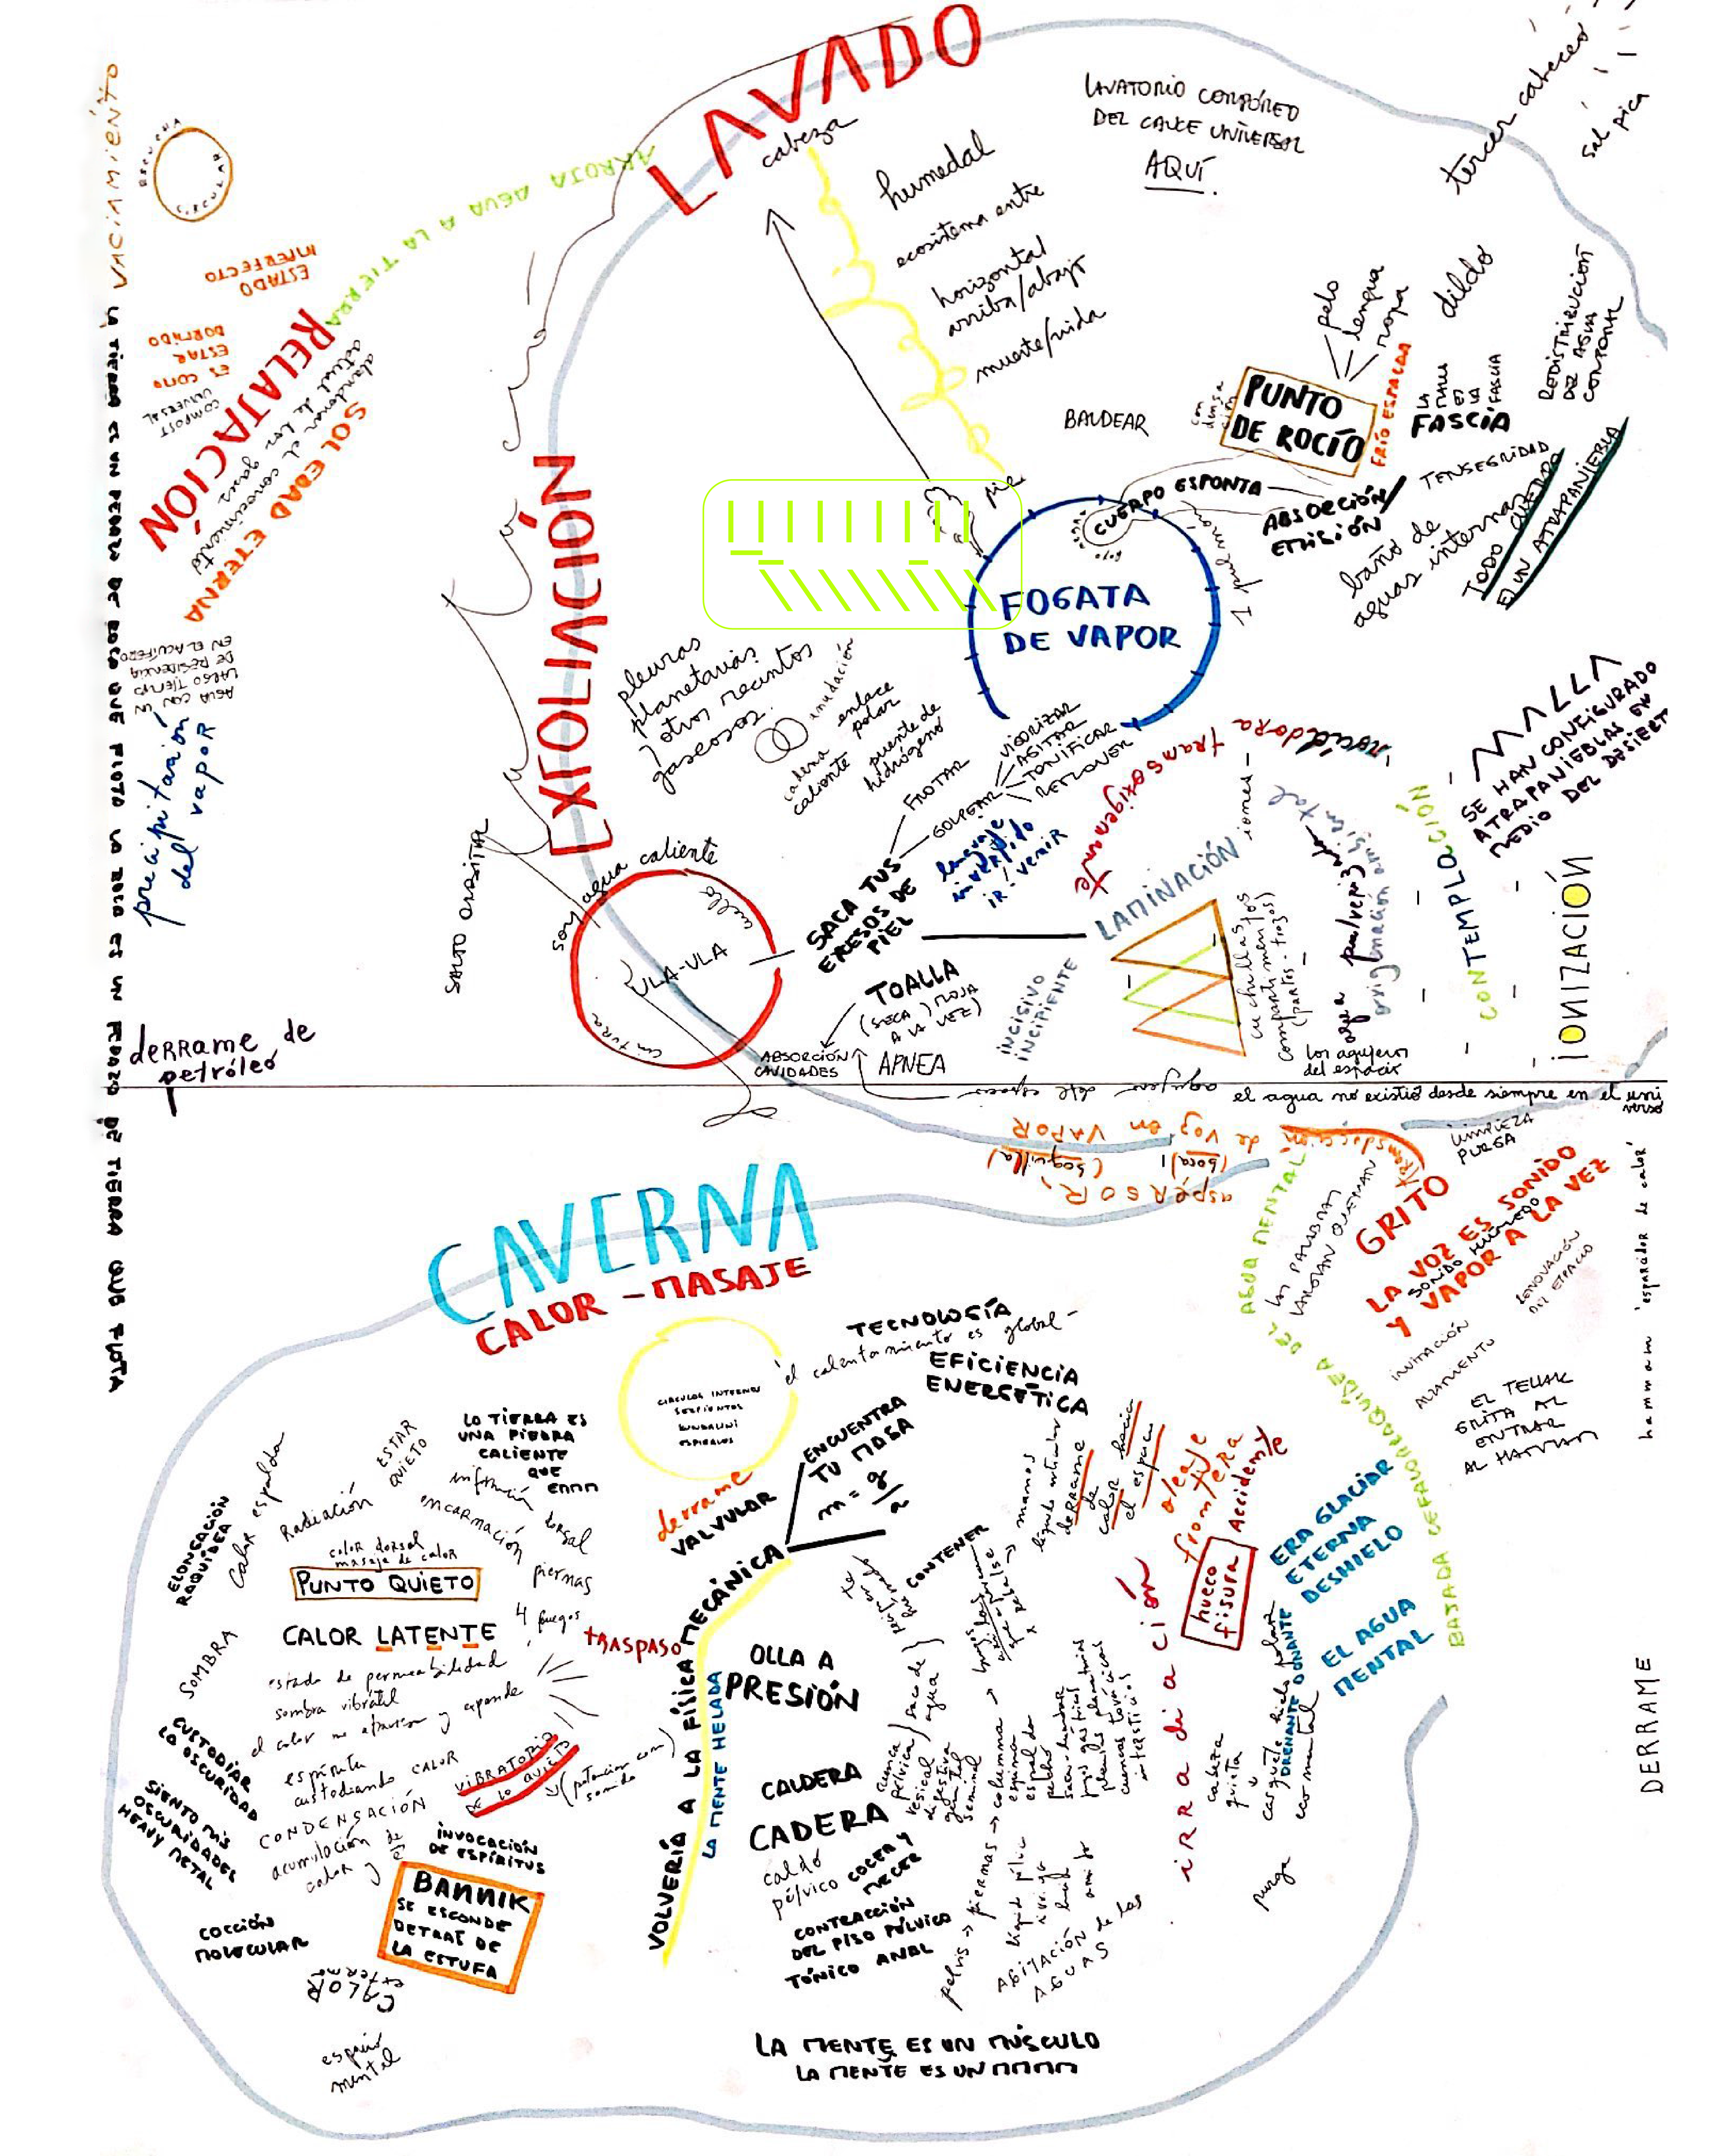 LAVADO
cabeza
LAVATORIO CORPÓREO
DEL CAUCE UNIVERSAL
AQUÍ.
tercer cabeceo
sal pica
humedal
ecosistema entre
horizontal
arriba/abajo
muerte/vida
pie
BALDEAR
pelo
lengua
ropa
dildo
REDISTRIBUCIÓN
DE AGUA
CORPORAL
PUNTO
DE ROCÍO
FRÍO ESPALDA
FASCIA
TENSEGRIDAD
CUERPO ESPONJA
ABSORCIÓN/
EMISIÓN
baño de
aguas internas
TODO CUERPO
ES UN ATRAPANIEBLA
FOGATA
DE VAPOR
1 pulmón
VACIAMIENTO
ESCUCHA
CIRCULAR
ARROJA AGUA A LA TIERRA
ESTADO
IMPERFECTO
ES COMO
ESTAR
DORMIDO
COMPOST
UNIVERSAL
RELAJACIÓN
abandonar el conocimiento
actual de los gases
SOLEDAD ETERNA
AGUA CON SU
LARGO TIEMPO
DE RESIDENCIA
EN EL ACUÍFERO
precipitación
del vapor
LA TIERRA ES UN PEDAZO DE ROCA QUE FLOTA LA ROCA ES UN PEDAZO DE TIERRA QUE FLOTA
derrame de
petróleo
EXFOLIACIÓN
pleuras
planetarias
y otros recintos
gaseosos.
exudación
enlace
polar
puente de
hidrógeno
cadena
caliente
SALTO ORBITAL
soy agua caliente
ULA-ULA
cuello
cintura
SACA TUS
EXESOS DE
PIEL
FROTAR
GOLPEAR
VIGORIZAR
AGITAR
TONIFICAR
REMOVER
lenguaje
invertido
IR / VENIR
TOALLA
(SECA Y MOJA
A LA VEZ)
ABSORCIÓN
CAVIDADES
APNEA
INCISIVO
INCIPIENTE
LAMINACIÓN
iones
transoxigenante
rociadora
cuchillas / los
compartimentos
(partes - trozos)
agua pulverizada
oxigenación ambiental
los agujeros
del espacio
CONTEMPLACIÓN
MALLA
SE HAN CONFIGURADO
ATRAPANIEBLAS EN
MEDIO DEL DESIERTO
IONIZACIÓN
agujeros del espacio
el agua no existió desde siempre en el uni
verso
transducción de voz en VAPOR
(boca)
(boquilla)
aspersor
CAVERNA
CALOR - MASAJE
LIMPIEZA
PURGA
GRITO
LAS PALABRAS
LARGAN QUEMAN
LA VOZ ES SONIDO
SONIDO HÚMEDO
Y VAPOR A LA VEZ
RENOVACIÓN
DEL ESPACIO
INVITACIÓN
EL TELLAK
GRITA AL
ENTRAR
AL HAMMAM
hammam 'esparcidor de calor'
BAJADA CEFALORRAQUÍDEA DEL AGUA MENTAL
CIRCULOS INTERNOS
SERPIENTES
KUNDALINI
ESPIRALES
TECNOLOGÍA
el calentamiento es global -
EFICIENCIA
ENERGÉTICA
ENCUENTRA
TU MASA
m = g/a
derrame
VALVULAR
CONTENER
derrame
de
calor hacia
el espacio
oleaje
frontera
Accidente
hueco
fisura
ERA GLACIAR
ETERNA
DESHIELO
EL AGUA
MENTAL
LA TIERRA ES
UNA PIEDRA
CALIENTE
QUE
EMMM
ESTAR
QUIETO
ELONGACIÓN
RAQUÍDEA
Calor espalda
Radiación
información dorsal
encarnación
piernas
calor dorsal
masaje de calor
PUNTO QUIETO
4 fuegos
CALOR LATENTE
traspaso
SOMBRA
estado de permeabilidad
sombra vibrátil
el calor me atraviesa y expande
espíritu
custodiando calor
CUSTODIAR
LA OSCURIDAD
VIBRATORIO
DE LO QUIETO
(potencia con)
sonido
SIENTO MIS
OSCURIDADES
HEAVY METAL
CONDENSACIÓN
acumulación de
calor y
INVOCACIÓN
DE ESPÍRITUS
BANNIK
SE ESCONDE
DETRÁS DE
LA ESTUFA
COCCIÓN
MOLECULAR
CALOR
externo
espacio
mental
VOLVERÍA A LA FÍSICA MECÁNICA
LA MENTE HELADA
OLLA A
PRESIÓN
CALDERA
CADERA
caldo
pélvico
COCER Y
MECER
CONTRACCIÓN
DEL PISO PÉLVICO
TÓNICO ANAL
cuenca
pélvica
vesical
digestiva
genital
seminal
saco de
agua
pelvis → piernas → columna
AGITACIÓN
AGUAS de las
iRRadiación
cabeza
quieta
DRENANTE DONANTE
casquete hielo polar
eco mental
purga
DERRAME
LA MENTE ES UN MÚSCULO
LA MENTE ES UN MMMM